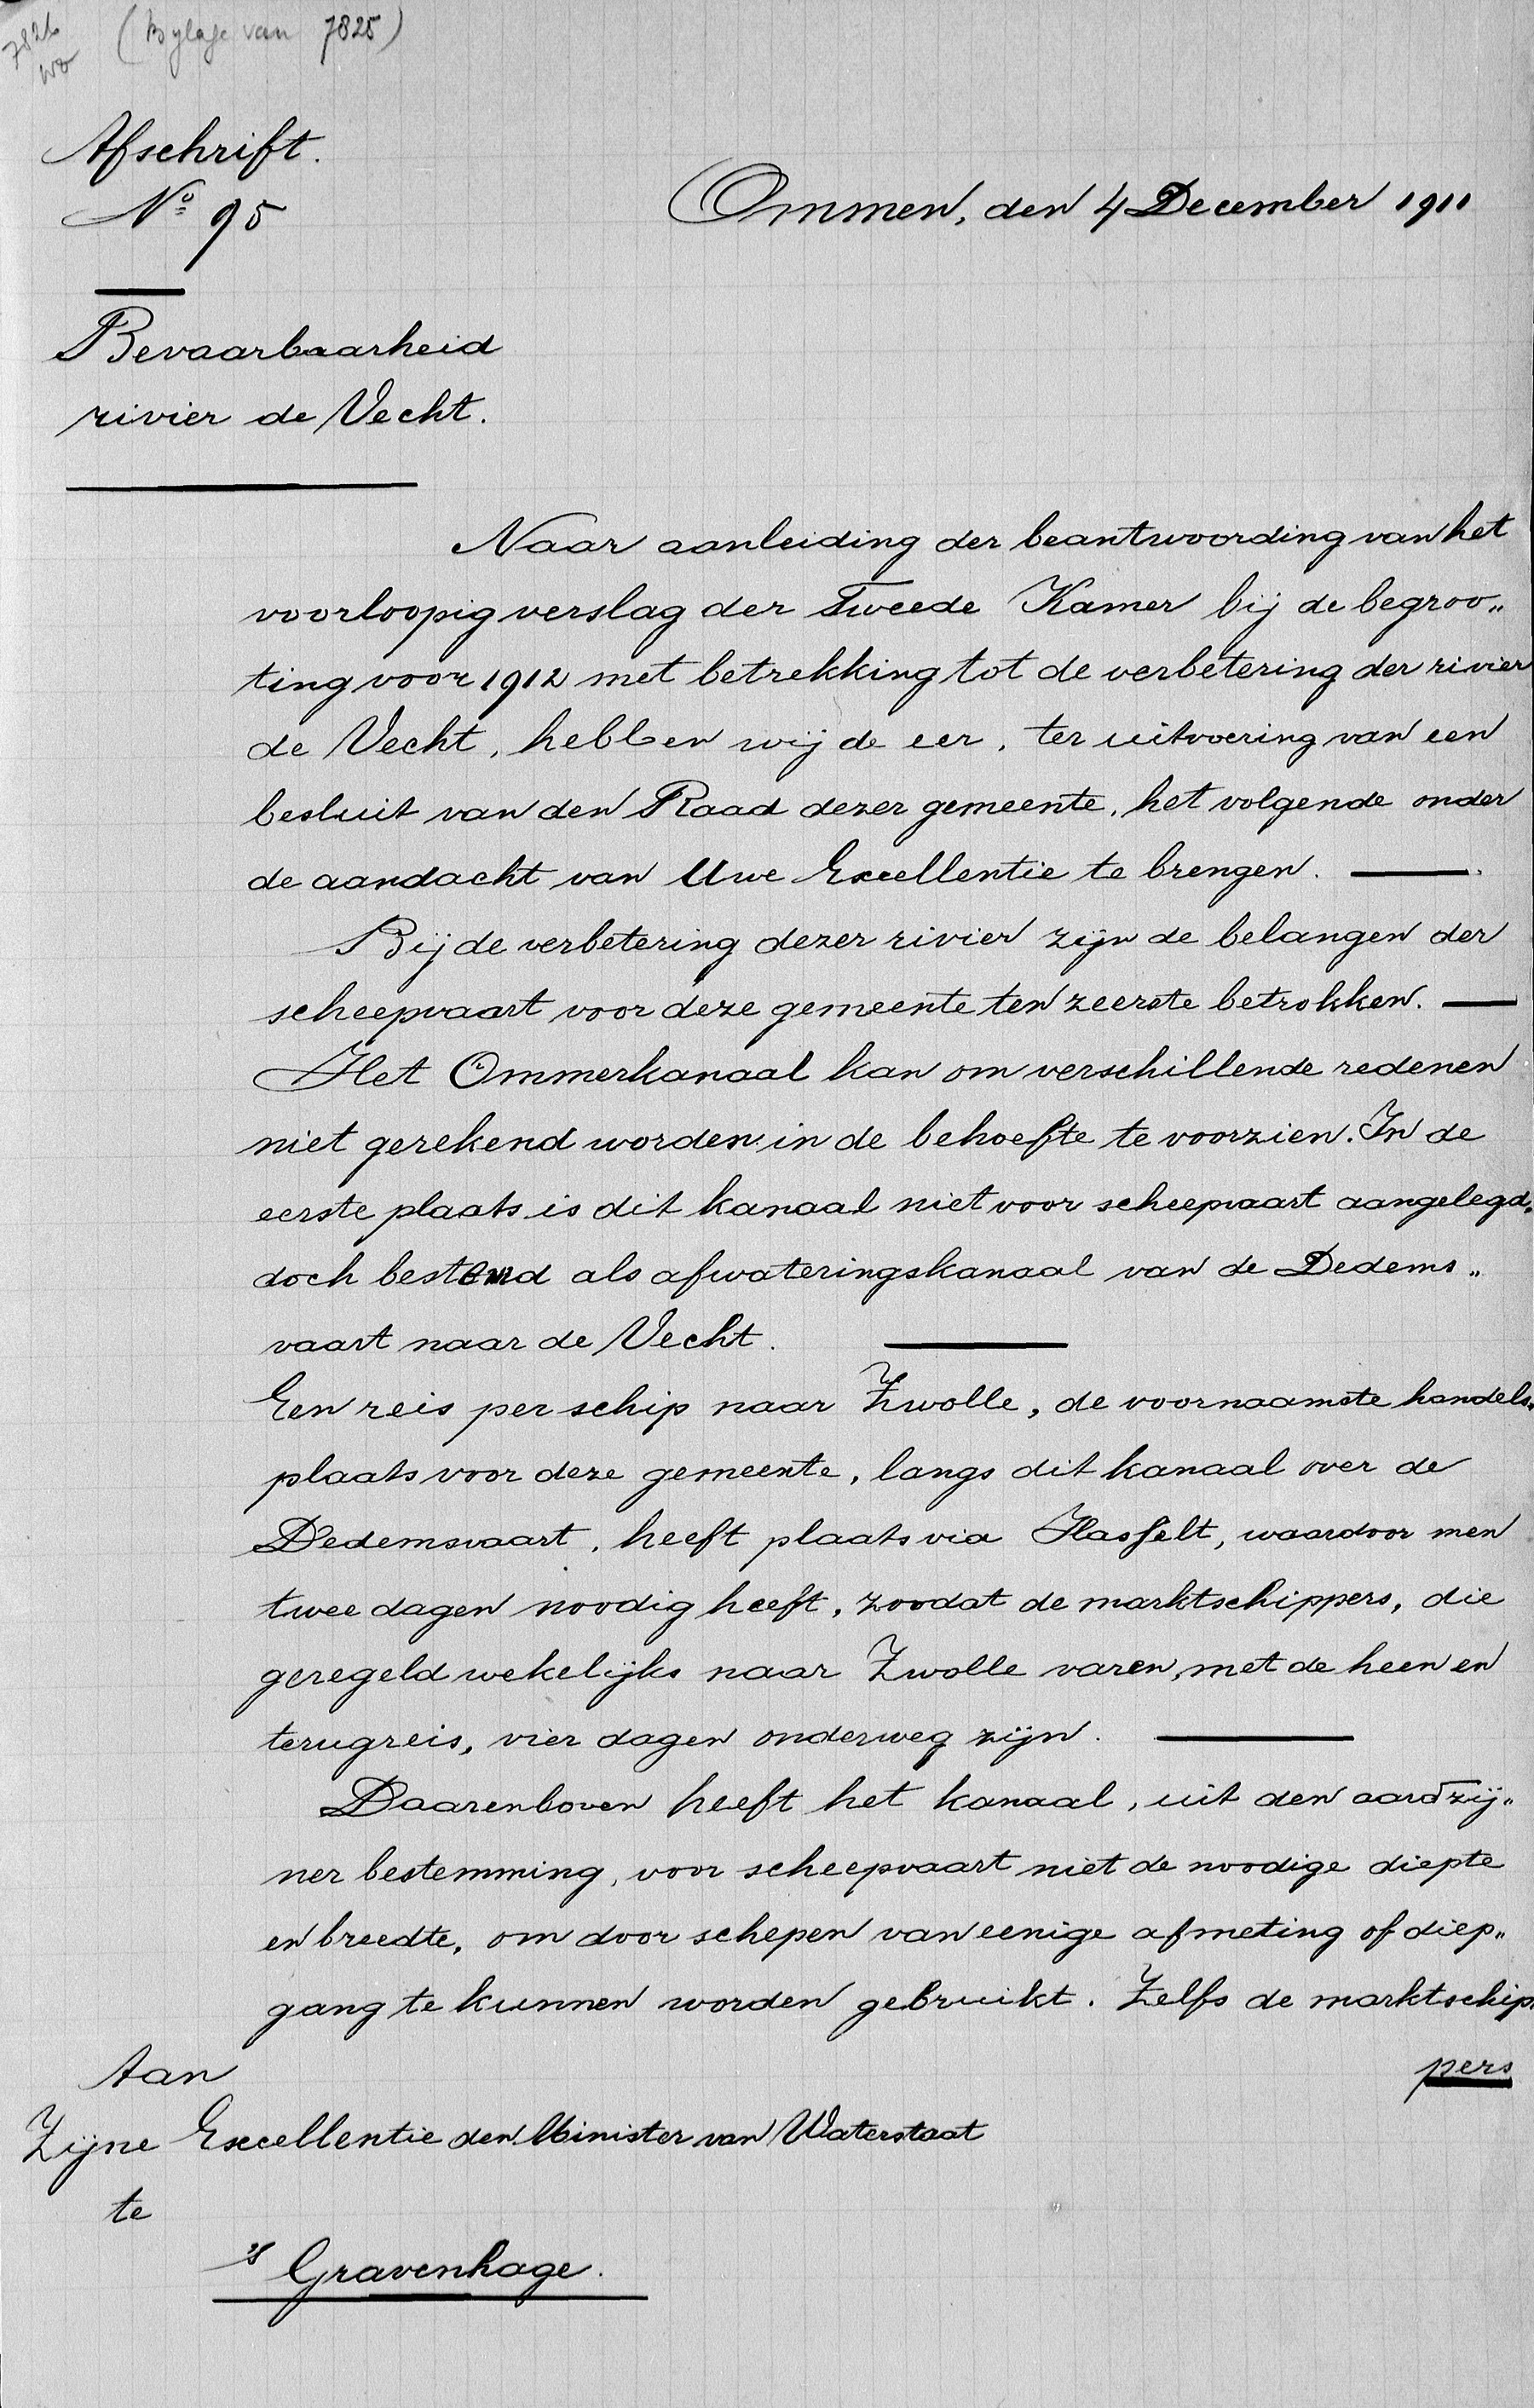 7826 (Bylage van 7825)
Afschrift.
No 95
Ommen, den 4 December 1911
Bevaarbaarheid
rivier de Vecht.
Naar aanleiding der beantwoording van het
voorloopig verslag der Tweede Kamer bij de begroo„
ting voor 1912 met betrekking tot de verbetering der rivier
de Vecht, hebben wij de eer, ter uitvoering van een
besluit van den Raad dezer gemeente, het volgende onder
de aandacht van Uwe Excellentie te brengen.
Bij de verbetering dezer rivier zijn de belangen der
scheepvaart voor deze gemeente ten zeerste betrokken.
Het Ommerkanaal kan om verschillende redenen
niet gerekend worden in de behoefte te voorzien. In de
eerste plaats is dit kanaal niet voor scheepvaart aangelegd,
doch bestemd als afwateringskanaal van de Dedems„
vaart naar de Vecht.
Een reis per schip naar Zwolle, de voornaamste handels„
plaats voor deze gemeente, langs dit kanaal over de
Dedemsvaart, heeft plaats via Hasselt, waardoor men
twee dagen noodig heeft, zoodat de marktschippers, die
geregeld wekelijks naar Zwolle varen, met de heen en
terugreis, vier dagen onderweg zijn.
Daarenboven heeft het kanaal, uit den aard zij„
ner bestemming, voor scheepvaart niet de noodige diepte
en breedte, om door schepen van eenige afmeting of diep„
gang te kunnen worden gebruikt. Zelfs de marktschip„
pers
Aan
Zijne Excellentie den Minister van Waterstaat
te
's Gravenhage.